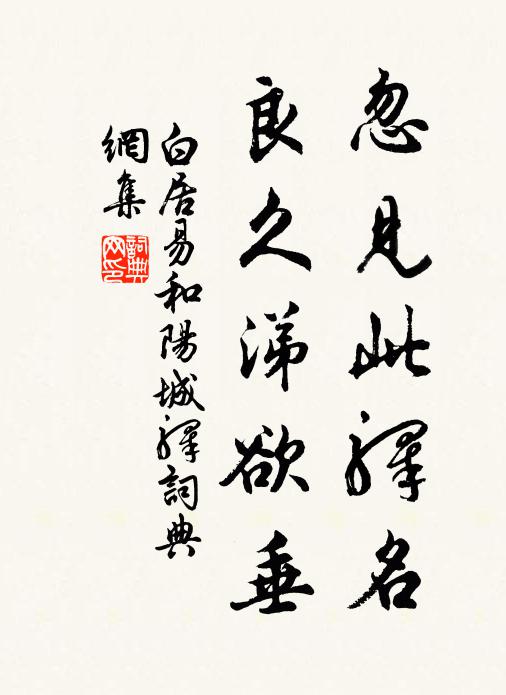 忽見此驛名
良久涕欲垂
白居易和陽城驛詞典
網集
詞典网印